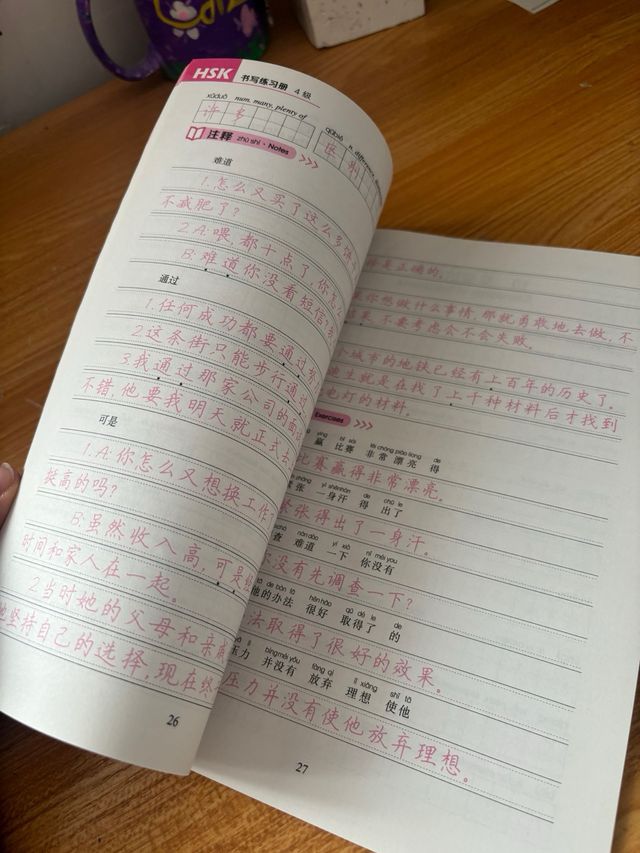 HSK 书写练习册 4级
xǔduō num. many, plenty of
许多
qūbié n. difference
区别
注释 zhù shì · Notes
难道
1.怎么又买了这么多
不减肥了?
2.A:喂,都十点了,你怎么
B:难道你没看短信
通过
1.任何成功都要通过
2.这条街只能步行通过
3.我通过那家公司的面
不错,他要我明天就正式去
可是
1.A:你怎么又想换工作
挺高的吗?
B:虽然收入高,可是
时间和家人在一起。
2当时她的父母和亲
坚持自己的选择,现在终
26
是正确的。
你想做什么事情,那就勇敢地去做,不
果,不要考虑会不会失败。
个城市的地铁已经有上百年的历史了。
生就是在找了上千种材料后才找到
电灯的材料。
Exercises
yíng bǐ sài fēicháng piàoliang de
赢 比赛 非常 漂亮 得
比赛赢得非常漂亮。
yì shēnhàn de chū le
张 一身汗 得 出了
紧张得出了一身汗。
nándào yí xià nǐ méiyǒu
查 难道 一下 你没有
你没有先调查一下?
tā de bànfǎ hěnhǎo qǔ dé le de
他的办法 很好 取得了 的
法取得了很好的效果。
bìngméi yǒu fàng qì lǐ xiǎng shǐ tā
压力 并没有 放弃 理想 使他
压力并没有使他放弃理想。
27